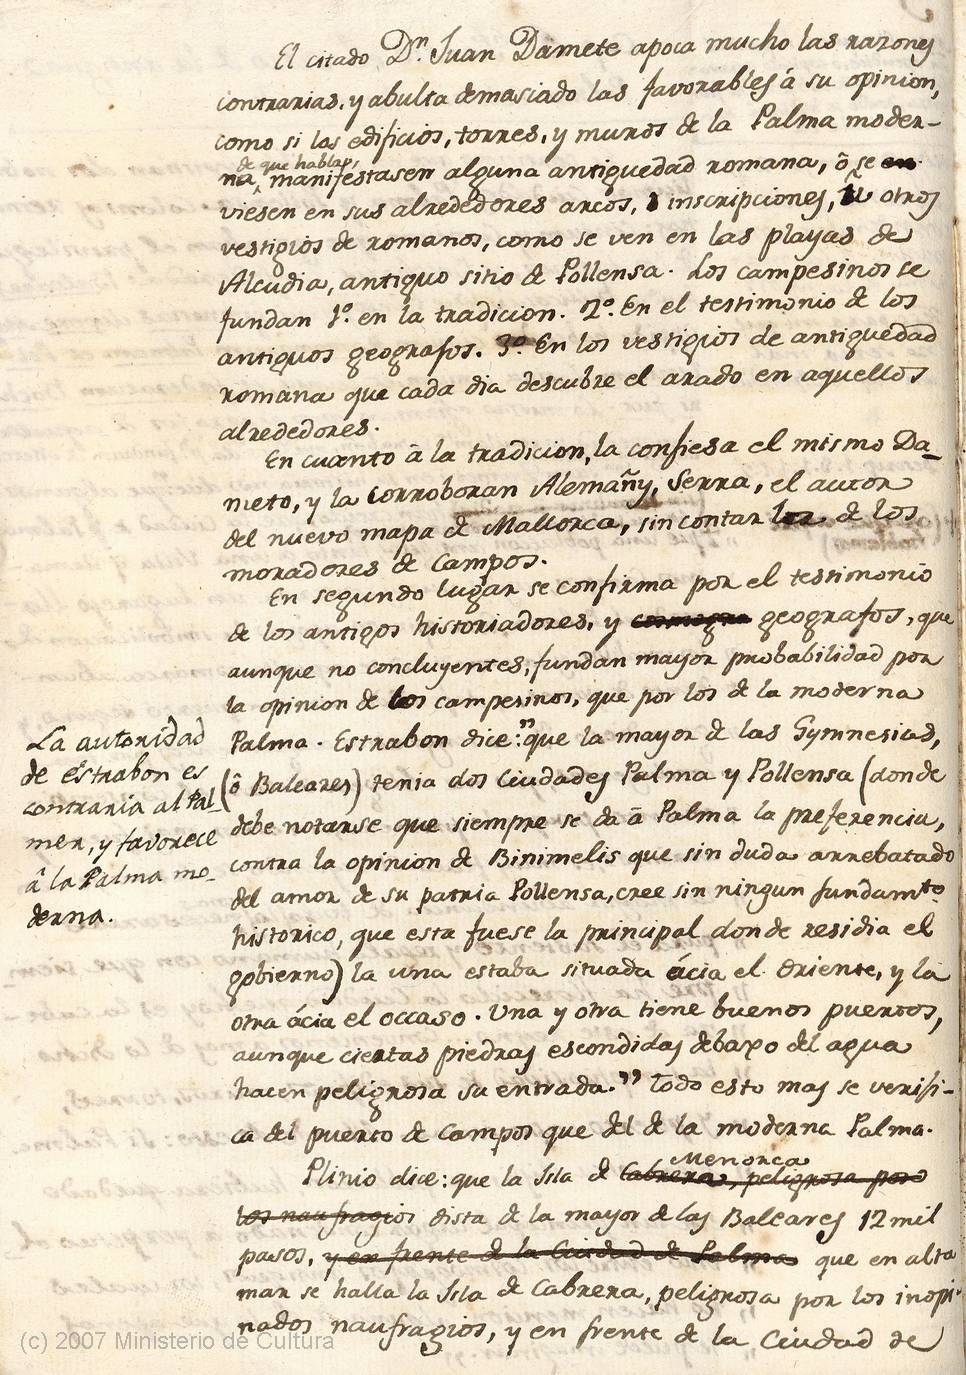 El citado Dn. Juan Dameto apoca mucho las razones
contrarias, y abulta demasiado las favorables á su opinion,
como si los edificios, torres, y muros de la Palma moder-
de que hablan,
na, manifestasen alguna antiguedad romana, ó se en
viesen en sus alrededores arcos, inscripciones, ú otros
vestigios de romanos, como se ven en las playas de
Alcudia, antiguo sitio de Pollensa. Los campesinos se
fundan 1º. en la tradicion. 2º. En el testimonio de los
antiguos geografos. 3º. En los vestigios de antiguedad
romana que cada dia descubre el arado en aquellos
alrededores.
En cuanto â la tradicion, la confiesa el mismo Da-
meto, y la corroboran Alemañy, Serra, el autor
del nuevo mapa de Mallorca, sin contar los de los
moradores de Campos.
En segundo lugar se confirma por el testimonio
de los antigos historiadores, y cosmogra geografos, que
aunque no concluyentes, fundan mayor probabilidad por
la opinion de los campesinos, que por los de la moderna
Palma. Estrabon dice: "que la mayor de las Gymnesias,
(ô Baleares) tenia dos Ciudades Palma y Pollensa (donde
debe notarse que siempre se da â Palma la preferencia,
contra la opinion de Binimelis que sin duda arrebatado
del amor de su patria Pollensa, cree sin ningun fundamto.
historico, que esta fuese la principal donde residia el
gobierno) la una estaba situada ácia el oriente, y la
otra ácia el occaso. Una y otra tiene buenos puertos,
aunque ciertas piedras escondidas debaxo del agua
hacen peligrosa su entrada." Todo esto mas se verifi-
ca del puerto de Campos que del de la moderna Palma.
Menorca
Plinio dice: que la Isla de Cabrera, peligrosa por
los naufragios dista de la mayor de las Baleares 12 mil
pasos, y en frente de la Ciudad de Palma que en alta
mar se halla la Isla de Cabrera, peligrosa por los inopi-
nados naufragios, y en frente de la Ciudad de
La autoridad
de Estrabon es
contraria al Pal-
mer, y favorece
â la Palma mo-
derna.
(c) 2007 Ministerio de Cultura